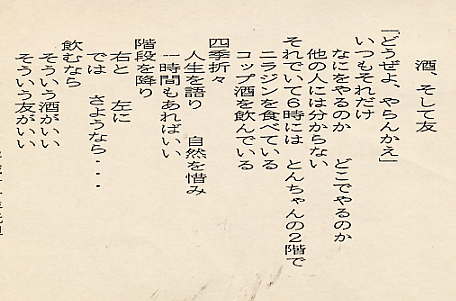 酒、そして友
「どうぜよ、やらんかえ」
いつもそれだけ
なにをやるのか　どこでやるのか
他の人には分からない
それでいて６時には　とんちゃんの２階で
ニラジンを食べている
コップ酒を飲んでいる
四季折々
人生を語り　自然を惜み
一時間もあればいい
階段を降り
右と　左に
では　さようなら・・・
飲むなら
そういう酒がいい
そういう友がいい